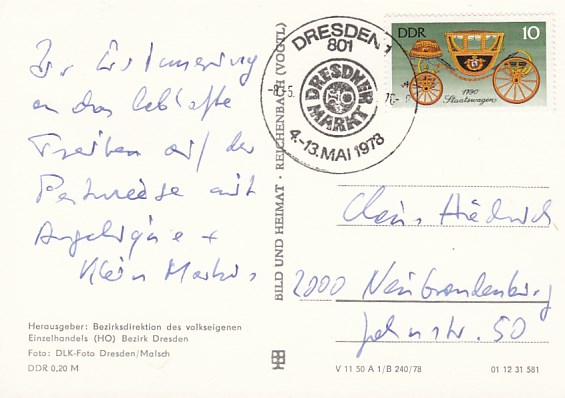 Zur Erinnerung
an das lebhafte
Treiben auf der
mit
Angelique +
Klein Markus
Herausgeber: Bezirksdirektion des volkseigenen
Einzelhandels (HO) Bezirk Dresden
Foto: DLK-Foto Dresden/Malsch
DDR 0,20 M
BILD UND HEIMAT · REICHENBACH (VOGTL)
DRESDEN 1
801
DRESDNER
MARKT
4.-13. MAI 1978
DDR 10
1790
Staatswagen
Claus
2000 Neubrandenburg
Jahnstr. 50
V 11 50 A 1/B 240/78 01 12 31 581